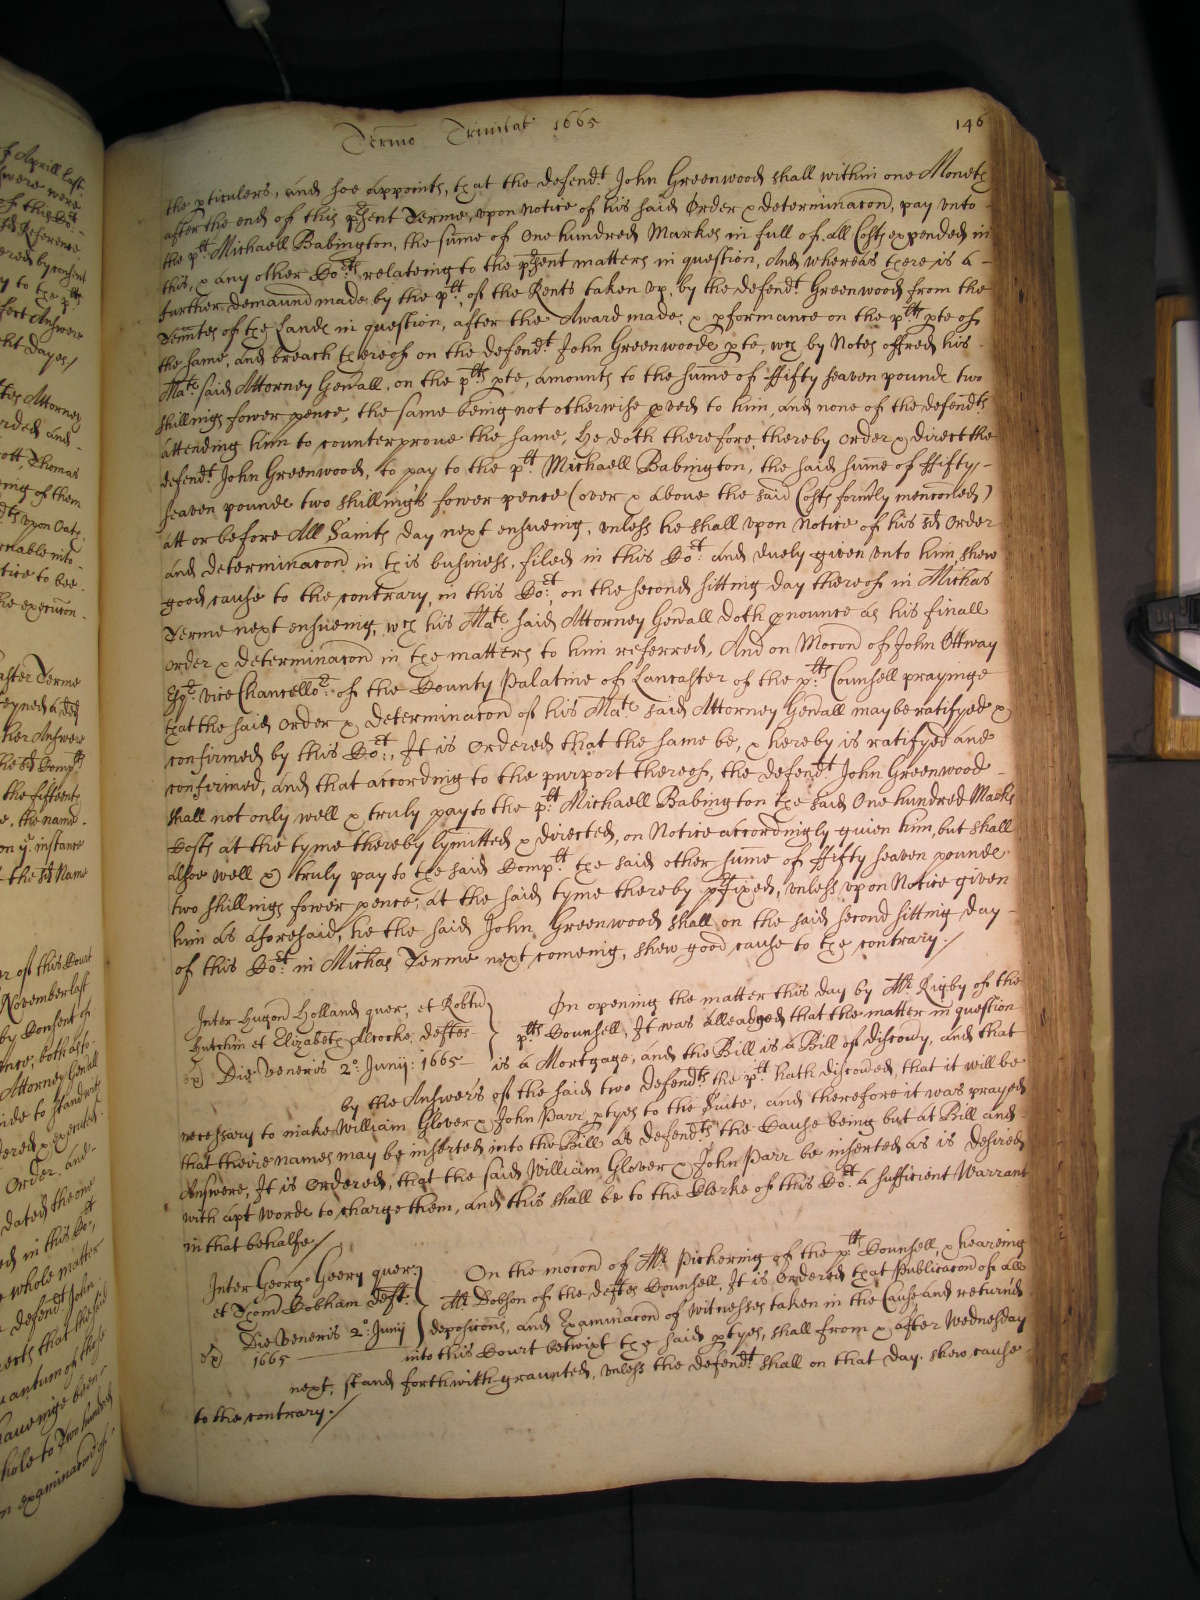 Termo Trinitat 1665
146
the pticulers, and soe appoints, that the defendt John Greenwood shall within one Moneth
after the end of this pſent Terme, vpon notice of his said Order & determinacon, pay vnto
the plt Michaell Babington, the sume of One hundred Markes in full of all Costs expended in
this, & any other Cots relateing to the pſent matters in question, And whereas there is a
further demaund made by the plt, of the Rents taken vp, by the defendt Greenwood from the
Tenntes of the Lands in question, after the Award made, & pformance on the plts pte of
the same, and breach thereof on the defendt John Greenwoods pte, wch by Notes offred his
Mats said Attorney Genall, on the plts pte, amounts to the sume of ffifty seaven pounds two
shillings fower pence, the same being not otherwise pved to him, and none of the defendts
attending him to counterprove the same, He doth therefore thereby order & direct the
defendt John Greenwood, to pay to the plt Michaell Babington, the said sume of ffifty
seaven pounds two shillings fower pence (over & above the said Costs formly menconed)
att or before All Saints day next ensueing, vnless he shall vpon Notice of his sd Order
and determinacon in this business, filed in this Cot and duely given vnto him, shew
good cause to the contrary, in this Cot, on the second sitting day thereof in Michas
Terme next ensueing, wch his Mats said Attorney Genall doth pnounce as his finall
order & determinacon in the matters to him referred, And on Mocon of John Ottway
Esqr vice Chancellor of the County Palatine of Lancaster of the plts Counsell prayinge
that the said Order & determinacon of his Mats said Attorney Genall may be ratifyed &
confirmed by this Cot, It is Ordered that the same be, & hereby is ratifyed and
confirmed, and that according to the purport thereof, the defendt John Greenwood
shall not only well & truly pay to the plt Michaell Babington the said One hundred Marks
Costs at the tyme thereby lymitted & directed, on Notice accordingly given him, but shall
alsoe well & truly pay to the said Complt the said other sume of ffifty seaven pounds
two shillings fower pence, at the said tyme thereby pfixed, vnless vpon Notice given
him as aforesaid, he the said John Greenwood shall on the said second sitting day
of this Cot in Michas Terme next comeing, shew good cause to the contrary./
Inter Hugon Holland quer, et Robtu
Hutchin et Elizabeth Alcocke defts
ex Die Veneris 2o Junij: 1665
On opening the matter this day by Mr Rigby of the
plts Counsell, It was alleadged that the matter in question
is a Mortgage, and the Bill is a Bill of discovy, and that
by the Answers of the said two defendts the plt hath discoved, that it will be
necessary to make William Glover & John Parr ptyes to the Suite, and therefore it was prayed
that theire names may be inserted into the Bill as defendts the Cause being but at Bill and
Answere, It is Ordered, that the said William Glover & John Parr be inserted as is desired
with apt Words to charge them, and this shall be to the Clerke of this Cot a sufficient Warrant
in that behalfe./
Inter George Geery quer
et Thom Cobham deft.
ex Die Veneris 2o Junij
1665
On the mocon of Mr Pickering of the plts Counsell, & heareing
Mr Dobson of the defts Counsell, It is Ordered that Publicacon of all
deposicons, and Examinacon of witnesses taken in the Cause and returnd
into this Court betwixt the said ptyes, shall from & after Wednesday
next, stand forthwith graunted, vnless the defendt shall on that day shew cause
to the contrary./